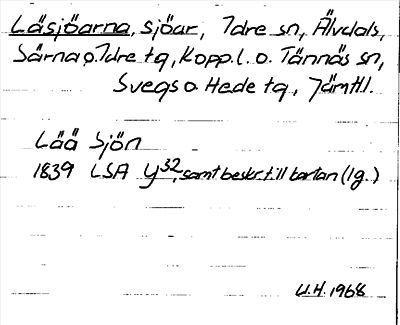 Läsjöarna, sjöar, Idre sn, Älvdals,
Särna o. Idre tg, Kopp.l. o. Tännäs sn,
Svegs o. Hede tg, Jämtl.l.
Lää Sjön
1839 LSA Y32, samt beskr. till kartan (lg.)
U.H. 1968